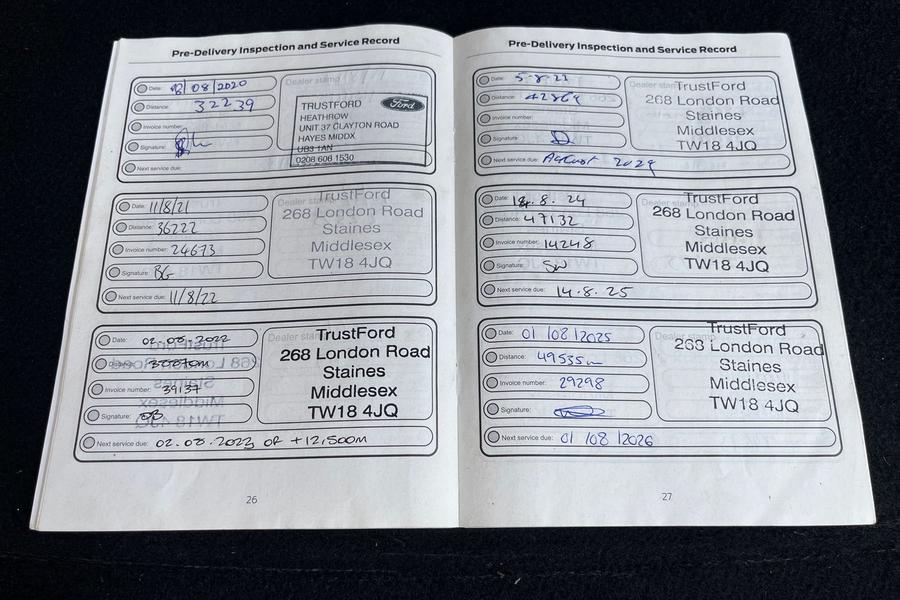 Pre-Delivery Inspection and Service Record
Date: /08/2020
Distance: 32239
Invoice number:
Signature:
Next service due:
Dealer stamp
TRUSTFORD
Ford
HEATHROW
UNIT 37 CLAYTON ROAD
HAYES MIDDX
UB3 1AN
0208 606 1530
Date: 11/8/21
Distance: 36222
Invoice number: 24673
Signature: BG
Next service due: 11/8/22
TrustFord
268 London Road
Staines
Middlesex
TW18 4JQ
Date: 02.08.2022
Distance:
Invoice number: 39137
Signature:
Next service due: 02.08.2023 OR +12,500m
Dealer stamp
TrustFord
268 London Road
Staines
Middlesex
TW18 4JQ
26
Pre-Delivery Inspection and Service Record
Date:
Distance: 42869
Invoice number:
Signature:
Next service due: August 2024
TrustFord
268 London Road
Staines
Middlesex
TW18 4JQ
Date: 14.8.24
Distance: 47132
Invoice number: 14248
Signature: SW
Next service due: 14.8.25
TrustFord
268 London Road
Staines
Middlesex
TW18 4JQ
Date: 01/08/2025
Distance: 49535m
Invoice number: 29298
Signature:
Next service due: 01/08/2026
TrustFord
268 London Road
Staines
Middlesex
TW18 4JQ
27